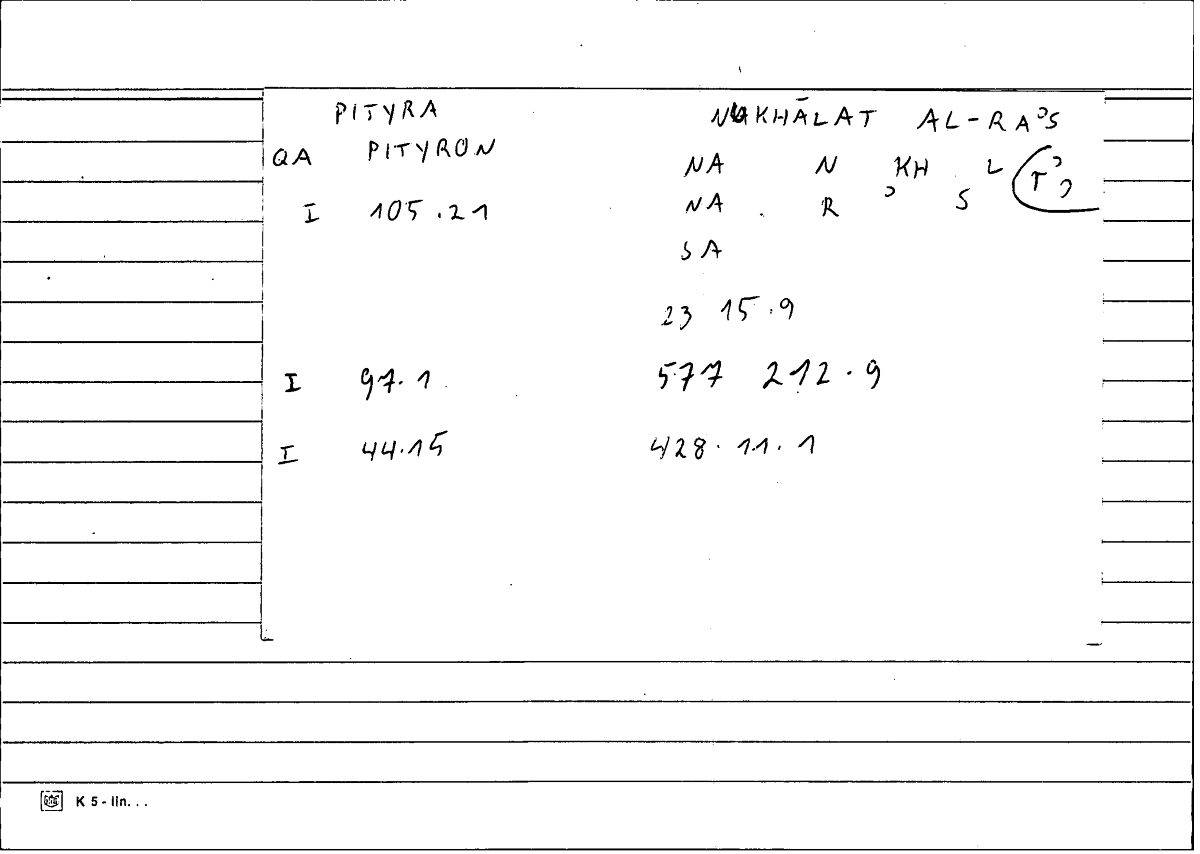 PITYRA NUKHĀLAT AL-RAʾS
QA PITYRON NA N KH L (Tʾ)
I 105.21 NA . R ʾ S
SA
23 15.9
I 97.1 577 212.9
I 44.15 428.11.1
K 5 - lin. . .